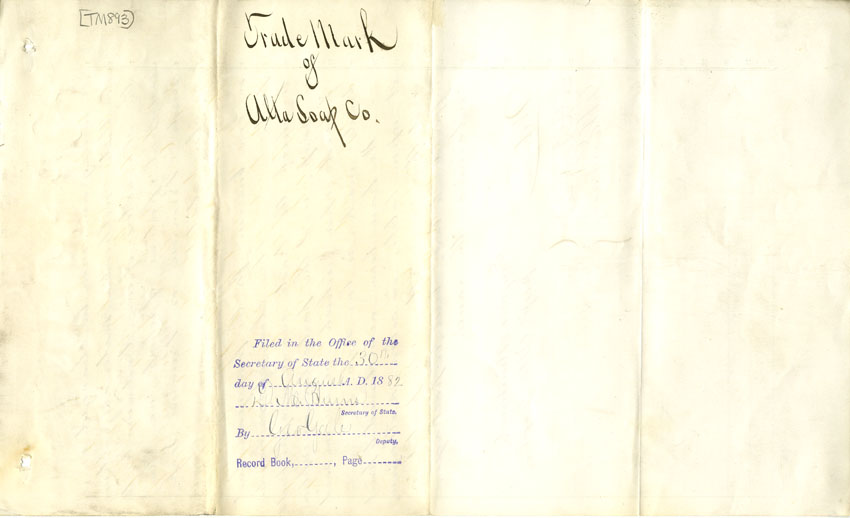 [TM1893]
Trade Mark
of
Alta Soap Co.
Filed in the Office of the
Secretary of State the 30th
day of August A. D. 1882
Secretary of State.
By
Deputy.
Record Book, , Page